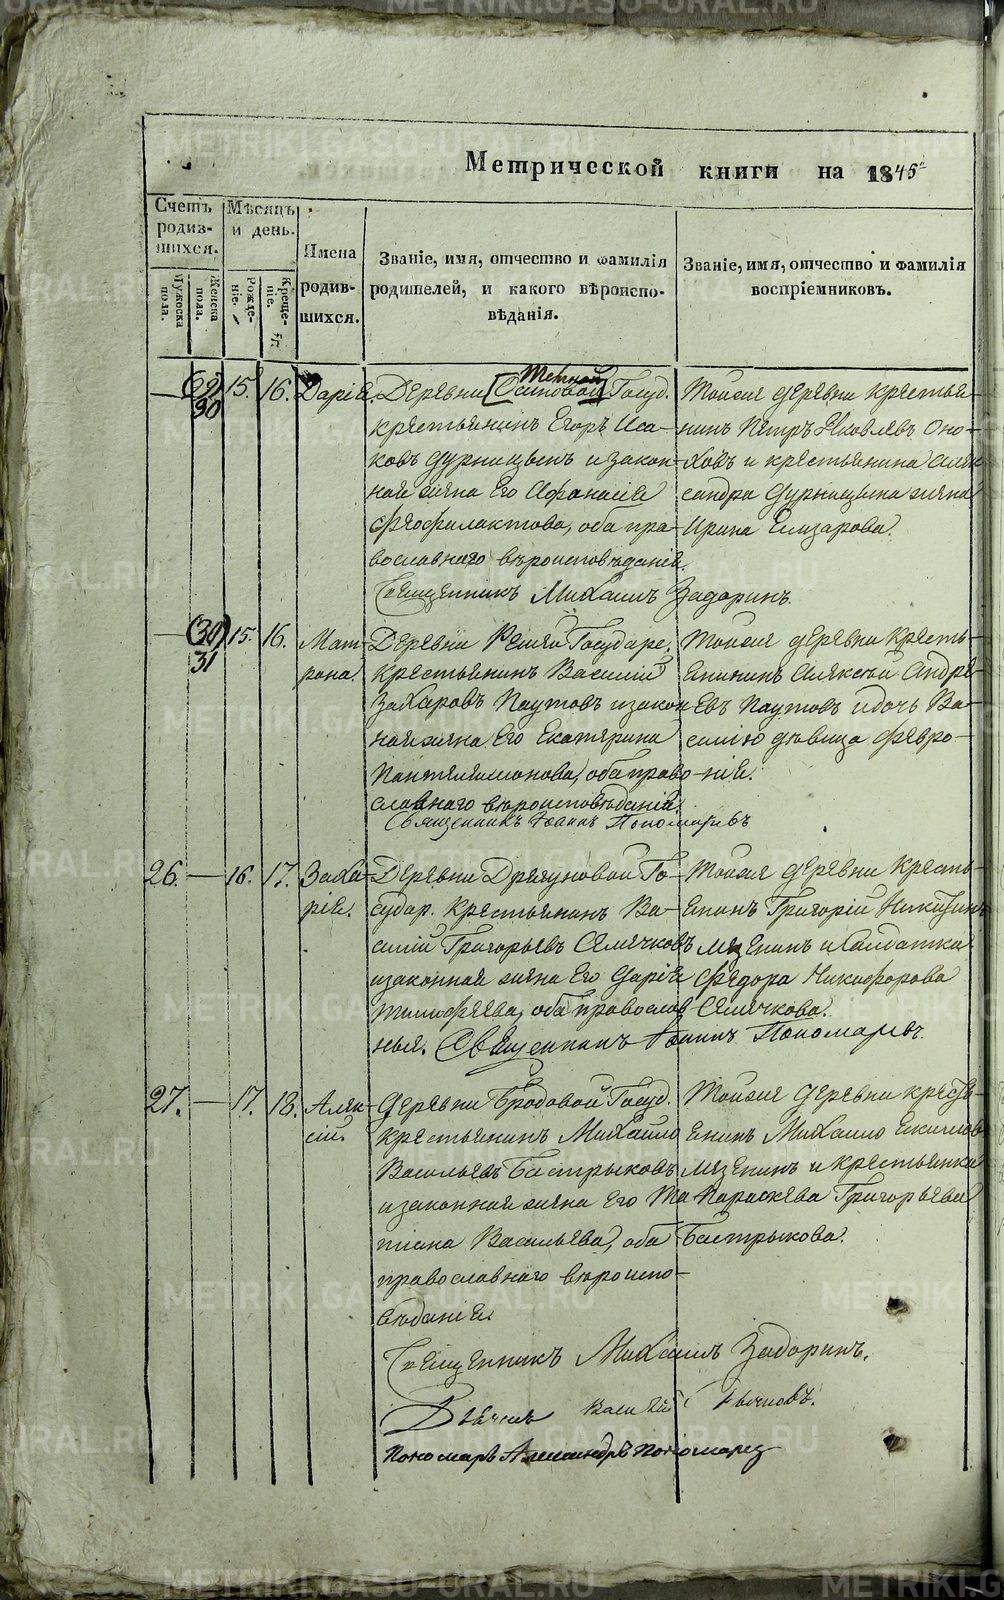 Метрической книги на 1845
Счетъ родив-шихся.
Мѣсяцъ и день.
Имена родив-шихся.
Званіе, имя, отчество и фамилія родителей, и какого вѣроиспо-вѣданія.
Званіе, имя, отчество и фамилія воспріемниковъ.
Мужеска пола.
Женска пола.
Рожде-ніе.
Креще-ніе.
29
30
15. 16. Дарія.
Деревни Осиновой Госуд.
крестьянинъ Егоръ Иса-
ковъ Дурницынъ и закон-
ная жена его Афанасія
Феофилактова, оба пра-
вославнаго вѣроисповѣданія.
Священникъ Михаилъ Задоринъ.
Тойже деревни крестья-
нинъ Петръ Яковлевъ Оно-
ховъ и крестьянина Алек
сандра Дурницына жена
Ирина Елизарова.
30
31
15. 16. Мат-
рона.
Деревни Государ.
Крестьянинъ Василій
Захаровъ Паутовъ и закон
ная жена его Екатерина
Пантелеимонова, оба право-
славнаго вѣроисповѣданія.
Священникъ Іоаннъ Пономаревъ
Тойже деревни Кресть-
янинъ Алексѣй Андре-
евъ Паутовъ и дочь Ва-
силію дѣвица Февро-
нія.
26. — 16. 17. Заха-
рія.
Деревни Драгуновой Го-
судар. Крестьянинъ Ва-
силій Григорьевъ Семячковъ
и законная жена его Дарія
Тимофеева, оба православ
ныя. Священникъ Іоаннъ Пономаревъ.
Тойже деревни Кресть-
янинъ Григорій Никитинъ
Мезенинъ и Солдатка
Федора Никифорова
Семячкова.
27. — 17. 18. Алек-
сій.
Деревни Бродовой Госуд.
крестьянинъ Михайло
Васильевъ Бастрыковъ
и законная жена его Та
тіана Васильева, оба
православнаго вѣроиспо-
вѣданія.
Тойже деревни кресть-
янинъ Михайло Екимов
Мезенинъ и крестьянка
Параскева Григорьева
Бастрыкова.
Священникъ Михаилъ Задоринъ.
Пономарь Александръ Пономарев